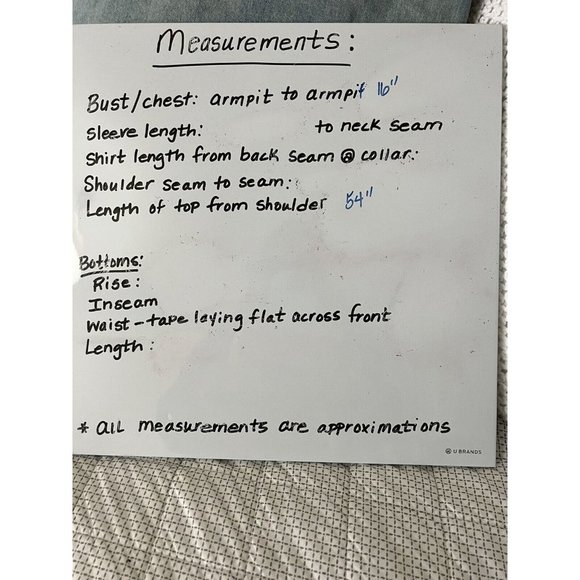 Measurements:
Bust/chest: armpit to armpit 16"
Sleeve length: to neck seam
Shirt length from back seam @ collar:
Shoulder seam to seam:
Length of top from shoulder 54"
Bottoms:
Rise:
Inseam
Waist - tape laying flat across front
Length:
* all measurements are approximations
U BRANDS